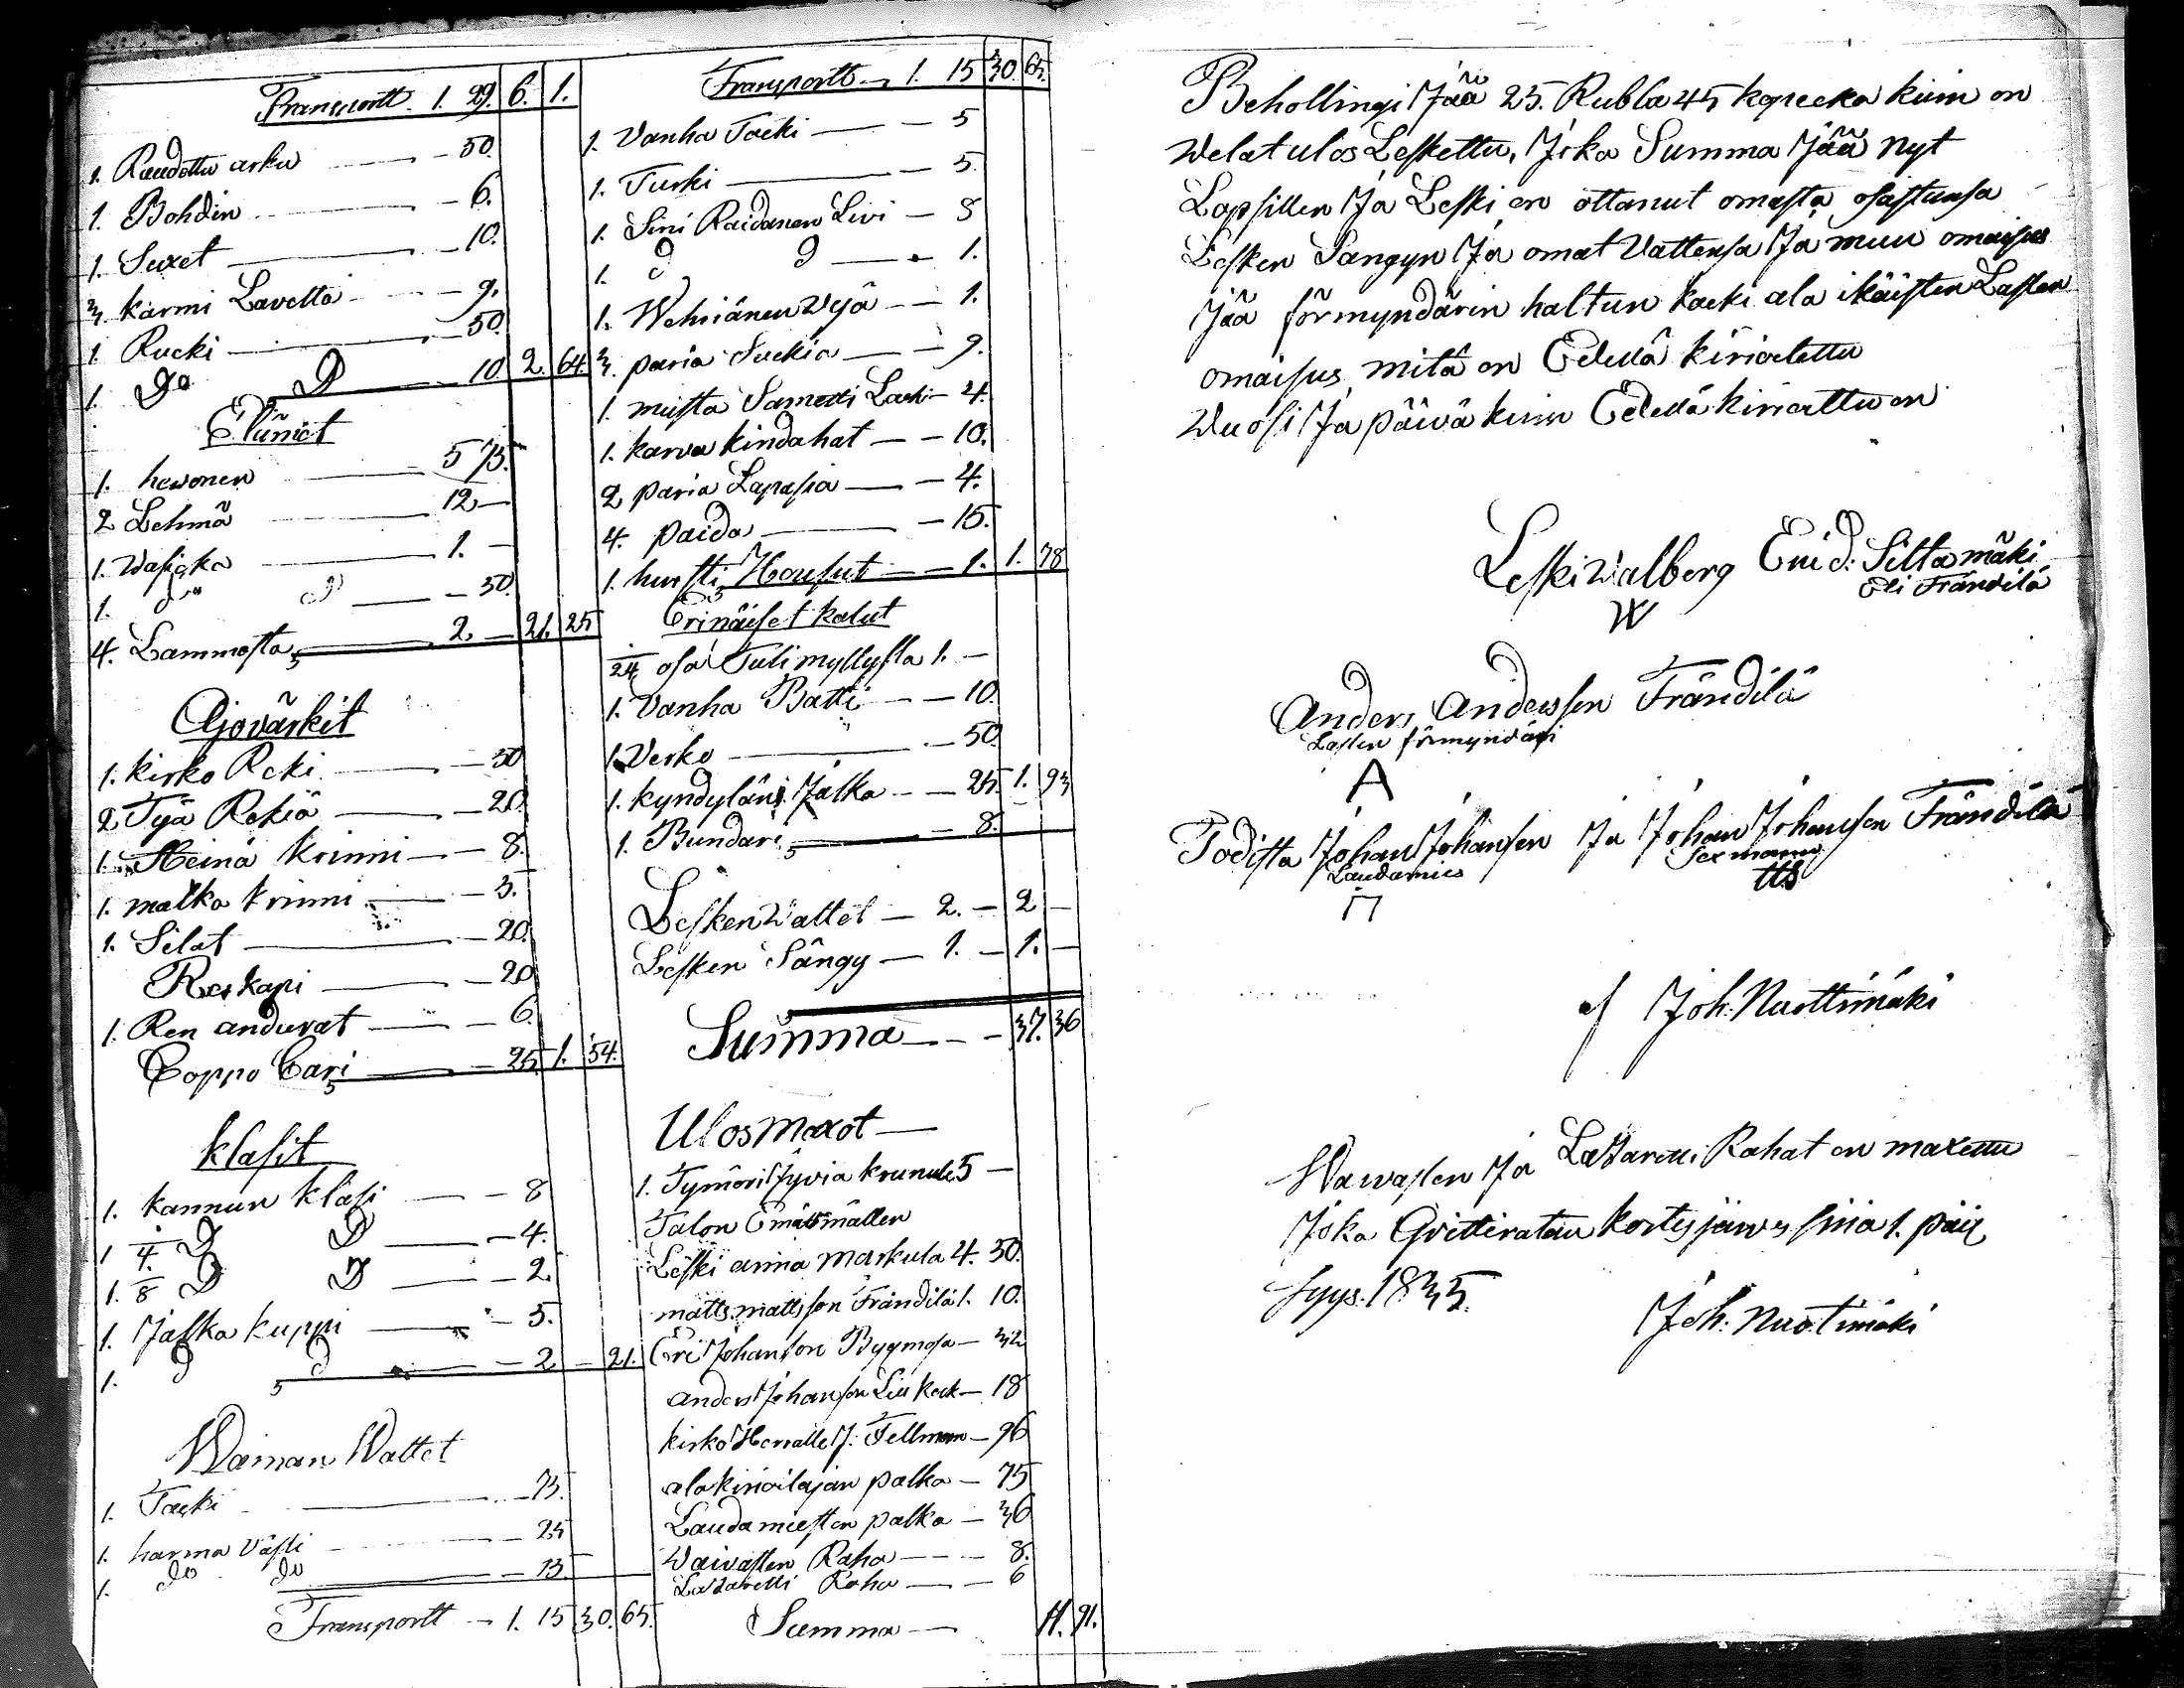 Transportt - 1. 29. 6. 1.
1. Raudottu arku — 50.
1. Bohdin — 6.
1. Suxet — 10.
3. karmi Lavetta — 9.
1. Rucki — 50.
1. Do D — 10 2. 64.
Elünict
1. hewonen — 5 75.
2 Lehmä — 12 —
1. Wasicka — 1. —
1. d:o d — 50.
4. Lammasta — 2. — 21. 25
Ajovärkit
1. kirko Reki — 50
2 Tyä Rekiä — 20.
1. Heinä krinni — 8.
1. malka krinni — 5.
1. Silat — 20.
Reskapi — 20
1. Ren anduvat — 6.
Coppo Cari — 25 1. 54.
klasit
1. kannun klasi — 8
1 1/4. D D — 4.
1. 1/8 D D — 2.
1. Jalka kuppi — 5.
1. d d — 2 — 21.
Wainan Wattet
1. Tacki — 75.
1. harma västi — 25
1. do do — 15.
Transportt — 1. 15 30. 65.
Transportt — 1. 15 30. 65.
1. Vanha Tacki — 5
1. Turki — 5.
1. Sini Raidanen Livi — 8
1. d d — 1.
1. Wehriänen Wyä — 1.
3. paria Suckia — 9.
1. musta Sametti Lacki — 4.
1. karva kindahat — 10.
2 paria Lapasia — 4.
4. paida — 15.
1. hursti Housut — 1. 1. 78
Erinäiset kalut
1/24 osa Tulimyllysta 1. —
1. Vanha Batti — 10.
1. Verko — 50.
1. kyndyläni Jalka — 25. 1. 93
1. Bundari — 8.
Lesken Wattet — 2. — 2 —
Lesken Sängy — 1. — 1. —
Summa — 37. 36
Ulosmaxot —
1. Tymöri Jyvia krunulle 5 —
Talon Emättmällen
Leski anna Markula 4. 50.
matts mattsson Frändilä 1. 10.
Eri Johanson Bygmosa — 32
anders Johanson Liukeck — 18
kirko Herralle J: Fellman — 96
ala kirioilajan palka — 75
Laudamiesten palka — 36
Waivasten Raha — 8.
Latzaretti Raha — 6
Summa — 11. 91.
Behollingi Jää 25. Rubla 45 kopecka kuin on
Welat ulos Leskettu, Joka Summa Jää nyt
Lapsillen Ja Leski on ottanut omasta osastansa
Lesken Sangyn Ja omat Vattensa Ja muu omaisus
Jää förmyndärin haltun kacki ala ikäisten Lasten
omaisus mitä on Edellä kirioitettu
Wuosi Ja päivä kuin Edellä kirioittu on
Leski Walberg Erid: Siltamäki
Eli Frändilä
W
Anders Andersson Frändilä
Lasten förmyndäri
A
Todista Johan Johansen Ja Johan Johansen Frändilä
Laudamies Sexmanni
af Joh: Nuottimäki
Wawasten Ja Latzaretti Rahat on maxettu
Joka Qvitteratan kortesjärves siiä 1. päiv
syys. 1835.
Joh: Nuotimäki